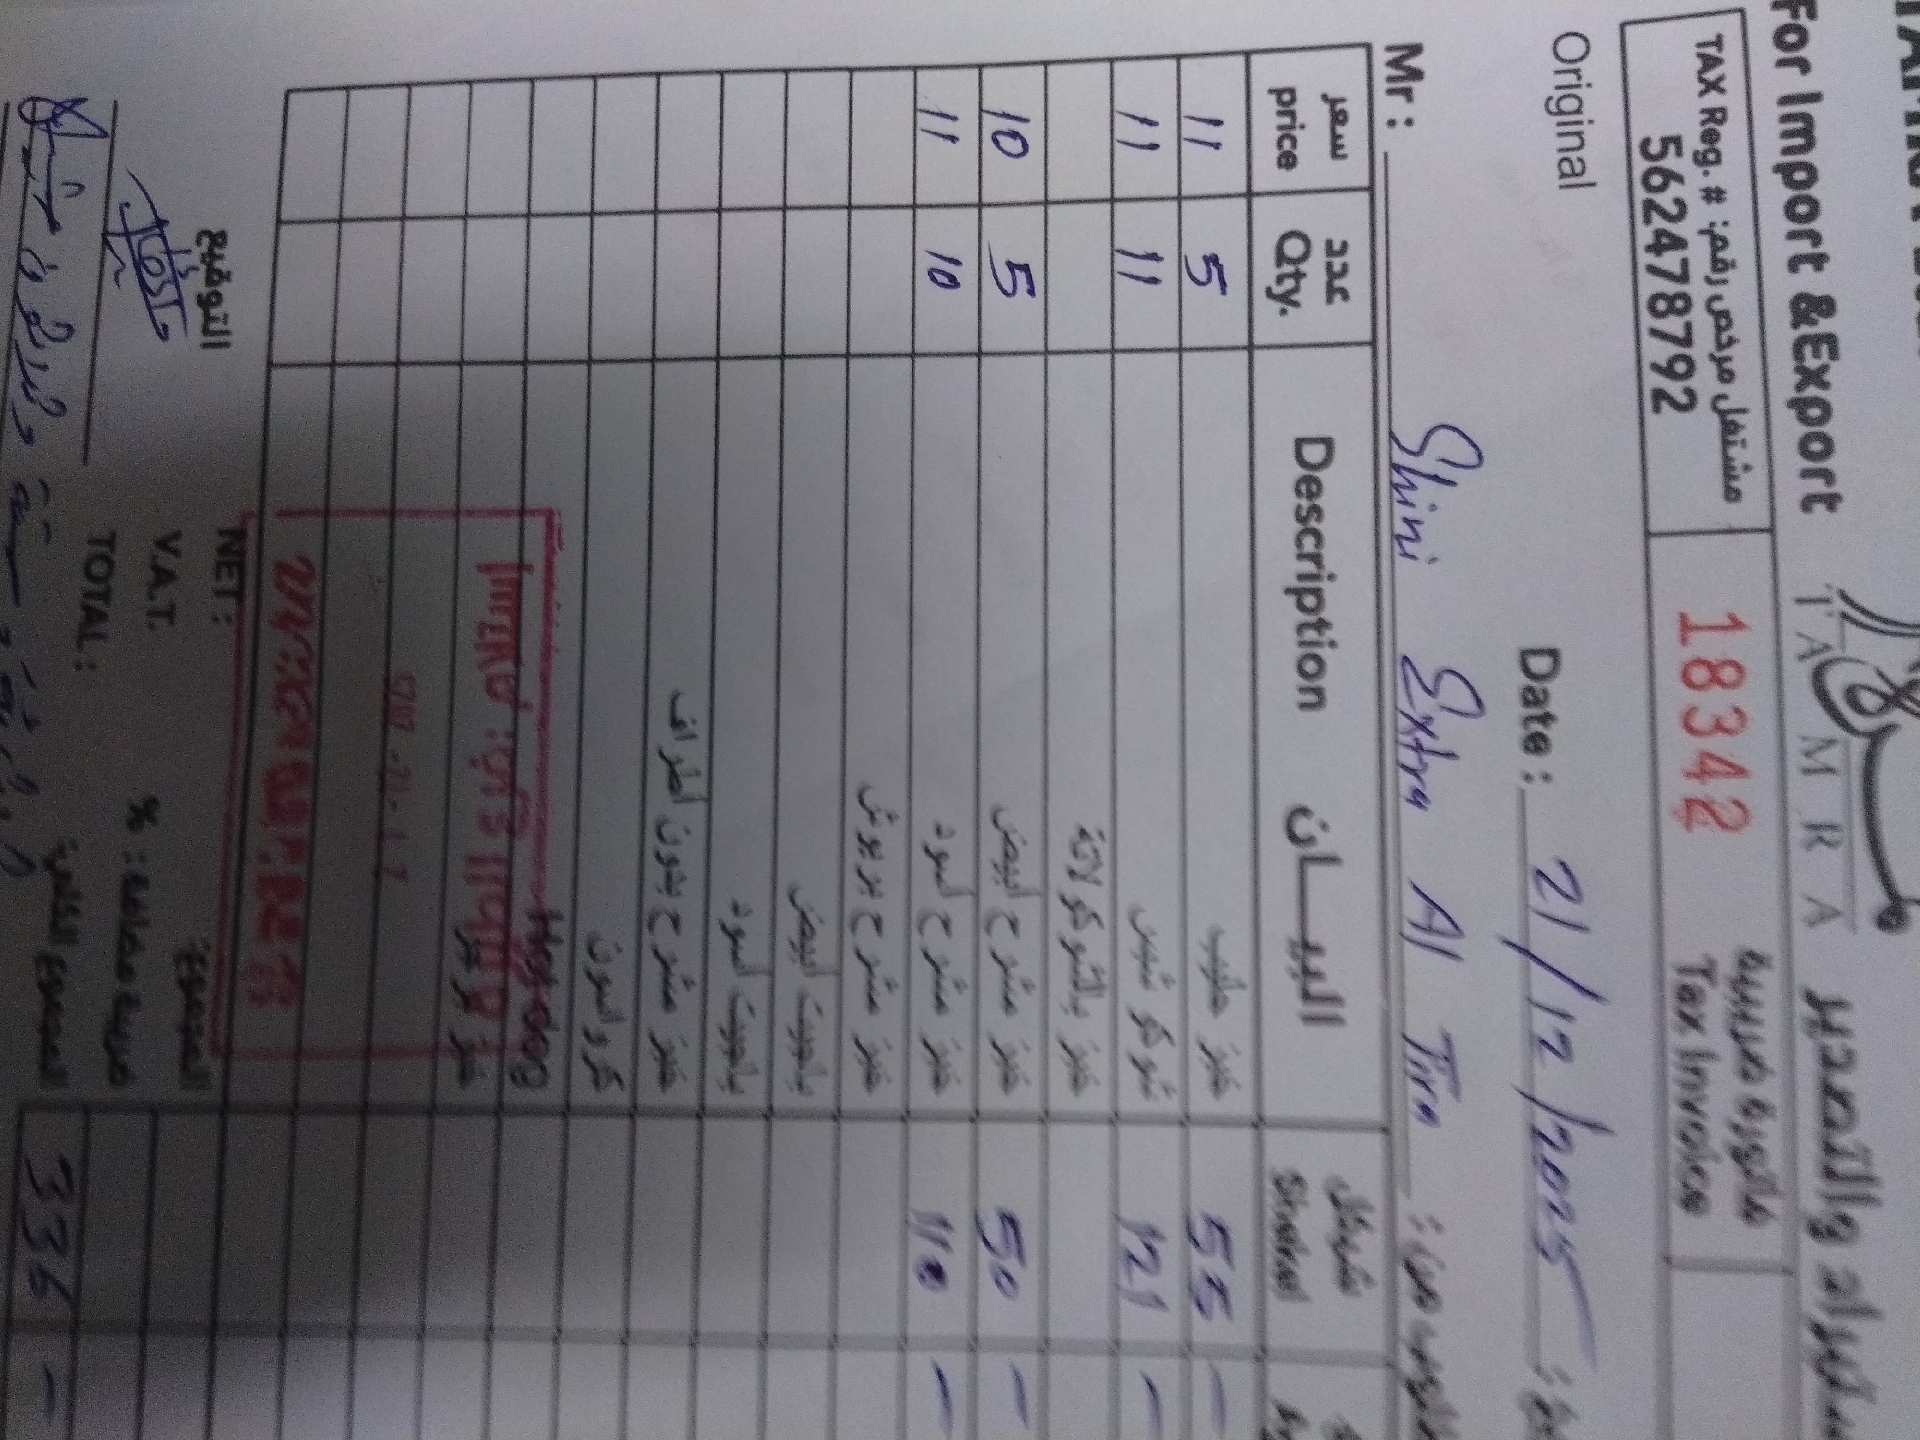 For Import &Export
TAMRA
TAX Reg. # :مشتغل مرخص رقم
562478792
18342
فاتورة ضريبية
Tax Invoice
Original
Date : 21/12/2025
Mr : Shini Extra Al Tira
سعر عدد البيـــان شيكل
price Qty. Description Shekel
11 5 خبز حليب 55 –
11 11 121 –
خبز بالشوكولاتة
10 5 خبز مشرح ابيض 50 –
11 10 خبز مشرح اسود 110 –
باجيت ابيض
باجيت اسود
خبز مشرح بدون اطراف
كرواسون
Hot dog
استلام :فرع الطيرة
التوقيع
NET : المجموع
V.A.T. % :ضريبة مضافة
TOTAL : المجموع الكلي 336 –